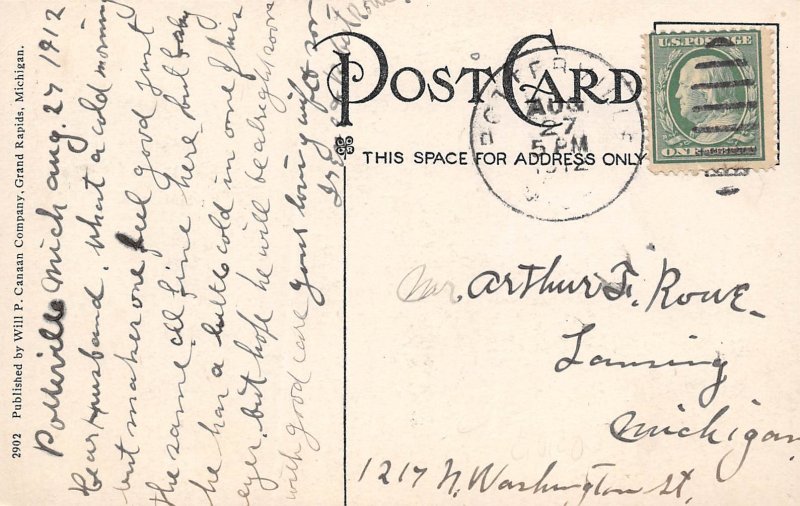 2902 Published by Will P. Canaan Company, Grand Rapids, Michigan.
Potterville Mich Aug. 27 1912
Dear Husband. What a cold morning
but makes one feel good just
the same all fine here but baby
he has a little cold in one of his
eyes. but hope he will be alright soon
with good care your loving wife & son
Rowe
POST CARD
THIS SPACE FOR ADDRESS ONLY
POTTERVILLE
AUG
27
5 PM
1912
U.S. POSTAGE
ONE
Mr. Arthur F. Rowe.
Lansing
Michigan
1217 N. Washington St.